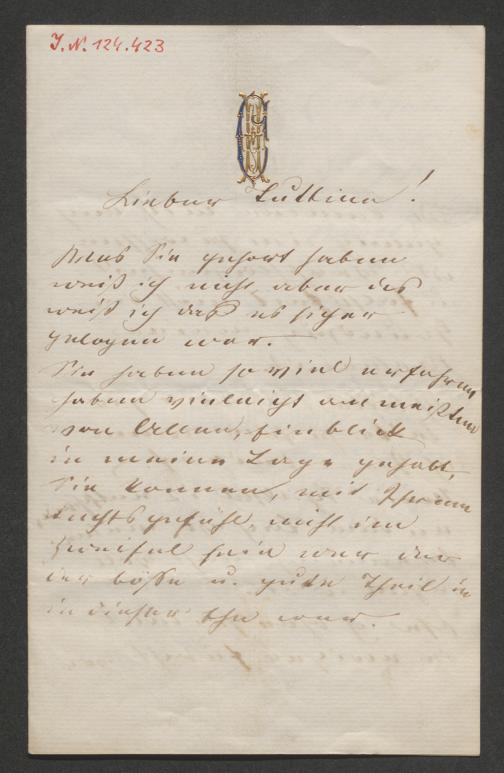 J.N. 124.423
Lieber Sulkina!
Was Sie gehört haben
weiß ich nicht, aber das
weiß ich das es sicher
gelogen war.
Sie haben so viel erfahren
haben vieleicht am meißten
von Allen, Einblick
in meine Lage gehabt,
Sie können, mit Ihrem
rechtsgefühl, nicht im
zweifel sein wer der
der bösse u. gute Theil in
in dieser Ehe war.